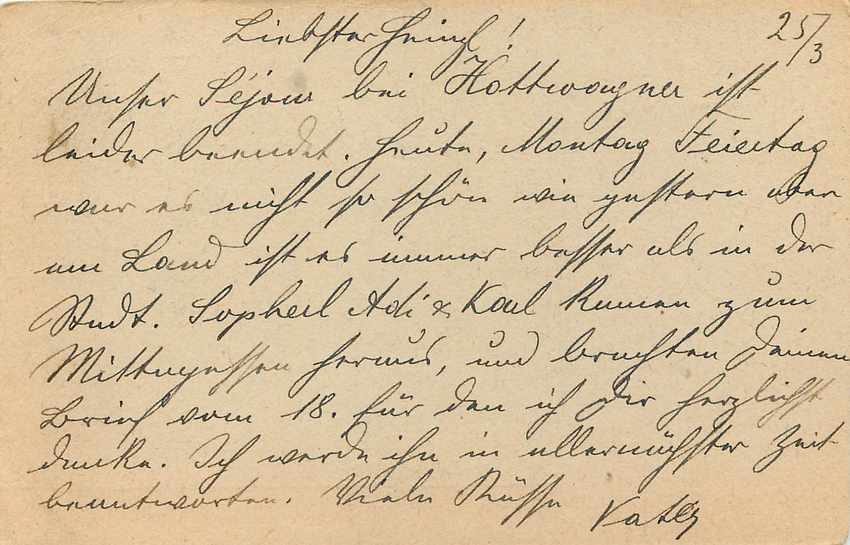 25/3
Liebster Heinzl!
Unser Séjour bei Hottwagner ist
leider beendet. Heute, Montag Feiertag
war es nicht so schön wie gestern aber
am Land ist es immer besser als in der
Stadt. Sopherl Adi & Karl kamen zum
Mittagessen heraus, und brachten Deinen
Brief vom 18. für den ich Dir herzlichst
danke. Ich werde ihn in allernächster Zeit
beantworten. Viele Küsse Vater